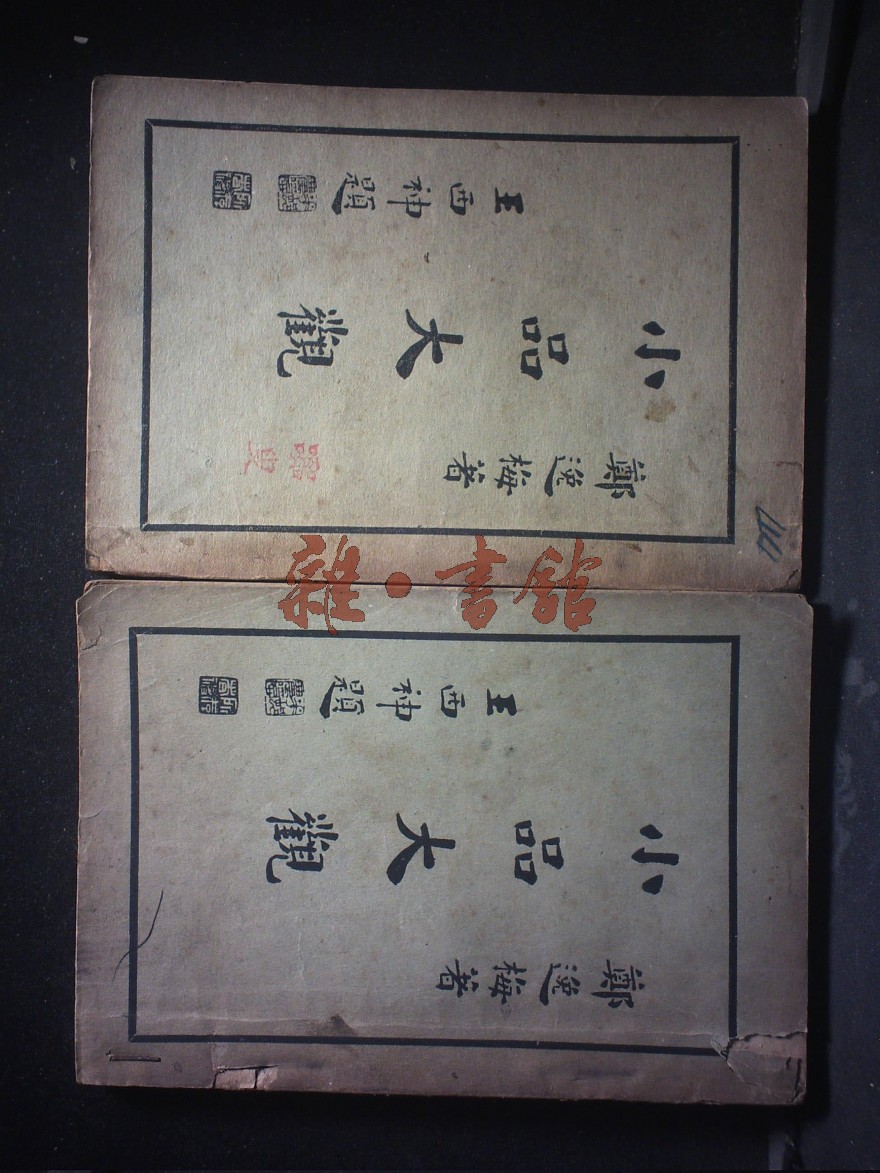 鄭逸梅著
小品大觀
王西神題
雜·書館
鄭逸梅著
小品大觀
王西神題